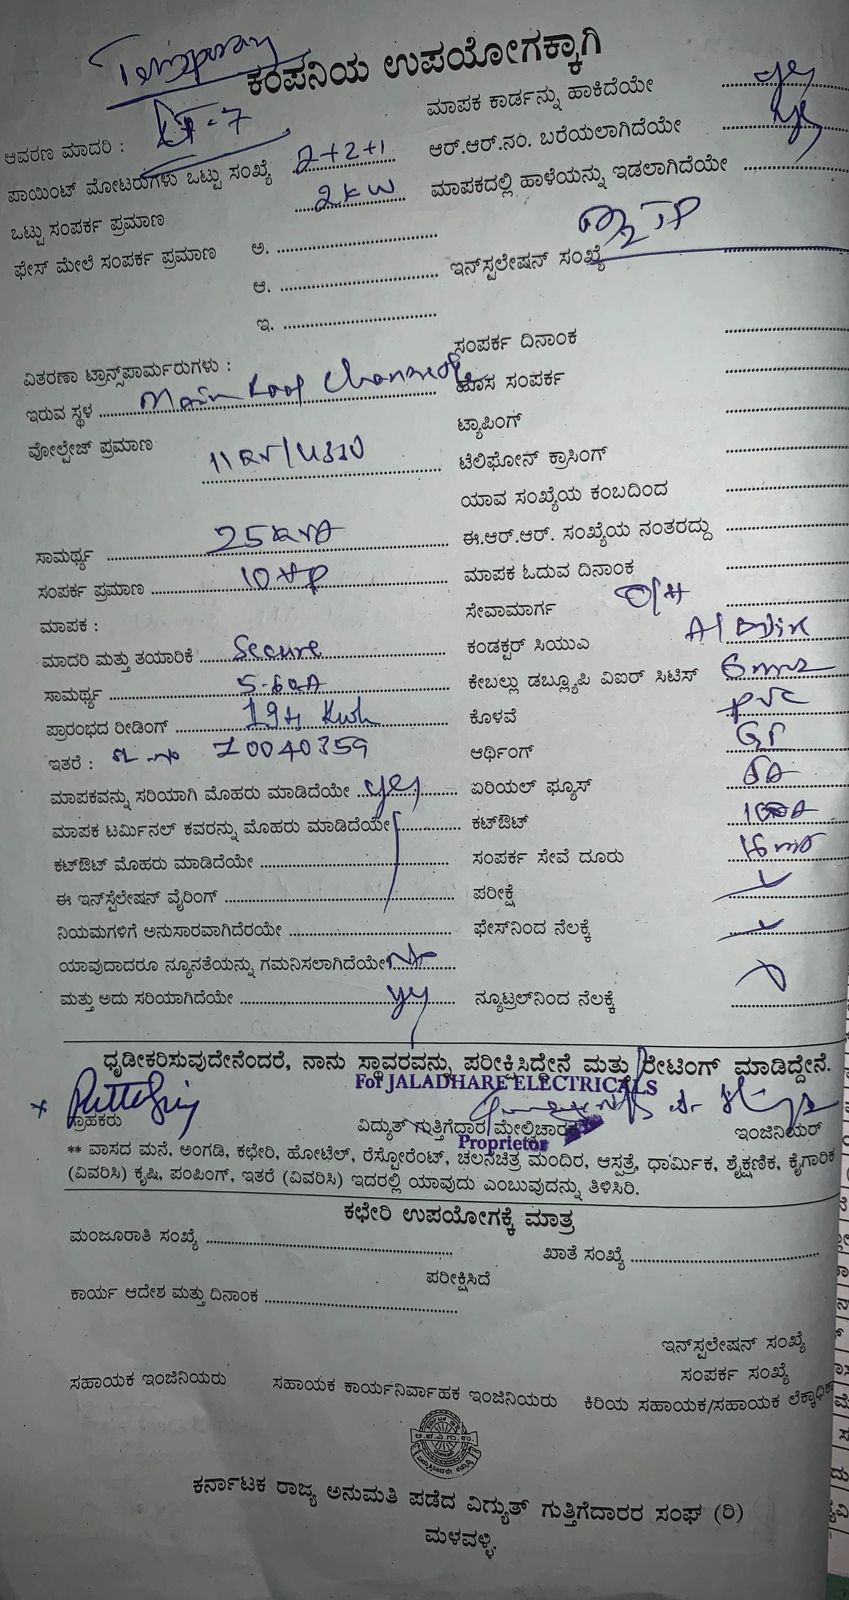 Temporary
ಕಂಪನಿಯ ಉಪಯೋಗಕ್ಕಾಗಿ
ಆವರಣ ಮಾದರಿ : LT-7
ಮಾಪಕ ಕಾರ್ಡನ್ನು ಹಾಕಿದೆಯೇ yes
ಪಾಯಿಂಟ್ ಮೋಟರುಗಳು ಒಟ್ಟು ಸಂಖ್ಯೆ 2+2+1
ಆರ್.ಆರ್.ನಂ. ಬರೆಯಲಾಗಿದೆಯೇ yes
ಒಟ್ಟು ಸಂಪರ್ಕ ಪ್ರಮಾಣ 2kw
ಮಾಪಕದಲ್ಲಿ ಹಾಳೆಯನ್ನು ಇಡಲಾಗಿದೆಯೇ
ಫೇಸ್ ಮೇಲೆ ಸಂಪರ್ಕ ಪ್ರಮಾಣ ಅ.
ಆ.
ಇ.
ಇನ್‌ಸ್ಟಲೇಷನ್ ಸಂಖ್ಯೆ
ವಿತರಣಾ ಟ್ರಾನ್ಸ್‌ಫಾರ್ಮರುಗಳು :
ಸಂಪರ್ಕ ದಿನಾಂಕ
ಇರುವ ಸ್ಥಳ
ಹೊಸ ಸಂಪರ್ಕ
ವೋಲ್ಟೇಜ್ ಪ್ರಮಾಣ
ಟ್ಯಾಪಿಂಗ್
ಟೆಲಿಫೋನ್ ಕ್ರಾಸಿಂಗ್
ಯಾವ ಸಂಖ್ಯೆಯ ಕಂಬದಿಂದ
ಸಾಮರ್ಥ್ಯ 25KVA
ಈ.ಆರ್.ಆರ್. ಸಂಖ್ಯೆಯ ನಂತರದ್ದು
ಸಂಪರ್ಕ ಪ್ರಮಾಣ 10HP
ಮಾಪಕ ಓದುವ ದಿನಾಂಕ
ಮಾಪಕ :
ಸೇವಾಮಾರ್ಗ O/H
ಮಾದರಿ ಮತ್ತು ತಯಾರಿಕೆ Secure
ಕಂಡಕ್ಟರ್ ಸಿಯುಎ
ಸಾಮರ್ಥ್ಯ 5-60A
ಕೇಬಲ್ಲು ಡಬ್ಲ್ಯೂಪಿ ವಿಐಆರ್ ಸಿಟಿಸ್ 6mm2
ಪ್ರಾರಂಭದ ರೀಡಿಂಗ್ 194 Kwh
ಕೊಳವೆ PVC
ಇತರೆ : SL-no 10040359
ಆರ್ಥಿಂಗ್ GP
ಮಾಪಕವನ್ನು ಸರಿಯಾಗಿ ಮೊಹರು ಮಾಡಿದೆಯೇ yes
ಏರಿಯಲ್ ಫ್ಯೂಸ್
ಮಾಪಕ ಟರ್ಮಿನಲ್ ಕವರನ್ನು ಮೊಹರು ಮಾಡಿದೆಯೇ
ಕಟ್‌ಔಟ್
ಕಟ್‌ಔಟ್ ಮೊಹರು ಮಾಡಿದೆಯೇ
ಸಂಪರ್ಕ ಸೇವೆ ದೂರು
ಈ ಇನ್‌ಸ್ಟೆಲೇಷನ್ ವೈರಿಂಗ್
ಪರೀಕ್ಷೆ
ನಿಯಮಗಳಿಗೆ ಅನುಸಾರವಾಗಿದೆರಯೇ
ಫೇಸ್‌ನಿಂದ ನೆಲಕ್ಕೆ
ಯಾವುದಾದರೂ ನ್ಯೂನತೆಯನ್ನು ಗಮನಿಸಲಾಗಿದೆಯೇ No
ಮತ್ತು ಅದು ಸರಿಯಾಗಿದೆಯೇ yes
ನ್ಯೂಟ್ರಲ್‌ನಿಂದ ನೆಲಕ್ಕೆ
ಧೃಡೀಕರಿಸುವುದೇನೆಂದರೆ, ನಾನು ಸ್ಥಾವರವನ್ನು ಪರೀಕ್ಷಿಸಿದ್ದೇನೆ ಮತ್ತು ರೇಟಿಂಗ್ ಮಾಡಿದ್ದೇನೆ.
For JALADHARE ELECTRICALS
ಗ್ರಾಹಕರು
ವಿದ್ಯುತ್ ಗುತ್ತಿಗೆದಾರ/ಮೇಲ್ವಿಚಾರಕ
ಇಂಜಿನಿಯರ್
Proprietor
** ವಾಸದ ಮನೆ, ಅಂಗಡಿ, ಕಛೇರಿ, ಹೋಟೆಲ್, ರೆಸ್ಟೋರೆಂಟ್, ಚಲನಚಿತ್ರ ಮಂದಿರ, ಆಸ್ಪತ್ರೆ, ಧಾರ್ಮಿಕ, ಶೈಕ್ಷಣಿಕ, ಕೈಗಾರಿಕ
(ವಿವರಿಸಿ) ಕೃಷಿ, ಪಂಪಿಂಗ್, ಇತರೆ (ವಿವರಿಸಿ) ಇದರಲ್ಲಿ ಯಾವುದು ಎಂಬುವುದನ್ನು ತಿಳಿಸಿರಿ.
ಕಛೇರಿ ಉಪಯೋಗಕ್ಕೆ ಮಾತ್ರ
ಮಂಜೂರಾತಿ ಸಂಖ್ಯೆ
ಖಾತೆ ಸಂಖ್ಯೆ
ಪರೀಕ್ಷಿಸಿದೆ
ಕಾರ್ಯ ಆದೇಶ ಮತ್ತು ದಿನಾಂಕ
ಇನ್‌ಸ್ಟಲೇಷನ್ ಸಂಖ್ಯೆ
ಸಂಪರ್ಕ ಸಂಖ್ಯೆ
ಸಹಾಯಕ ಇಂಜಿನಿಯರು
ಸಹಾಯಕ ಕಾರ್ಯನಿರ್ವಾಹಕ ಇಂಜಿನಿಯರು
ಕಿರಿಯ ಸಹಾಯಕ/ಸಹಾಯಕ ಲೆಕ್ಕಾಧಿಕ
ಕರ್ನಾಟಕ ರಾಜ್ಯ ಅನುಮತಿ ಪಡೆದ ವಿದ್ಯುತ್ ಗುತ್ತಿಗೆದಾರರ ಸಂಘ (ರಿ)
ಮಳವಳ್ಳಿ.